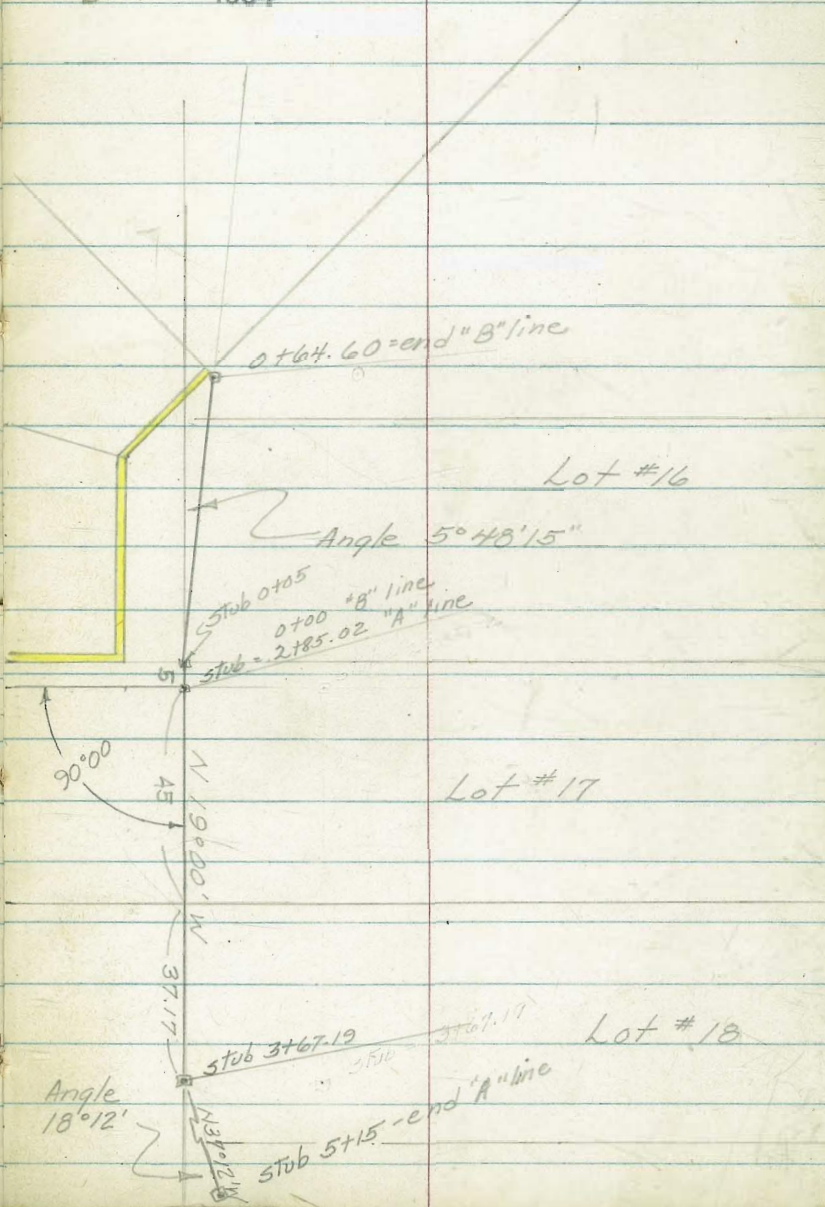 0+64.60=end "B" line
Lot #16
Angle 5°48'15"
Stub 0+05
0+00 "B" line
stub = 2+85.02 "A" line
5
90°00
45
N 19°00' W
Lot #17
37.17
Stub 3+67.19
Lot # 18
Angle
18°12'
stub 5+15 - end "A" line